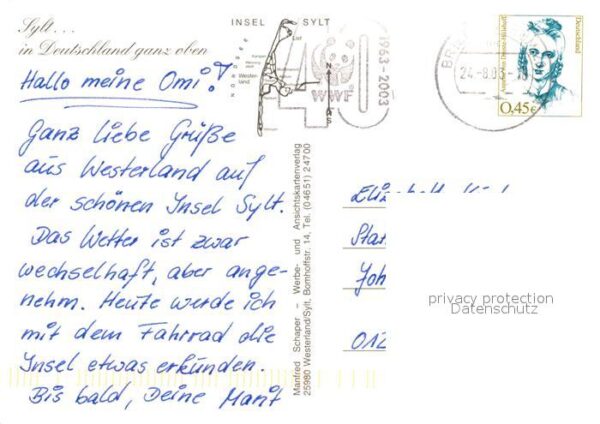 Sylt...
in Deutschland ganz oben
INSEL SYLT
NORDSEE
List
Westerland
N
S
40
WWF
1963-2003
24.-8.03
Deutschland
0,45€
Hallo meine Omi!
Ganz liebe Grüße
aus Westerland auf
der schönen Insel Sylt.
Das Wetter ist zwar
wechselhaft, aber ange-
nehm. Heute werde ich
mit dem Fahrrad die
Insel etwas erkunden.
Bis bald, Deine
Manfred Schaper - Werbe- und Ansichtskartenverlag
25980 Westerland/Sylt, Bomhoffstr. 14, Tel. (04651) 24700
Sta
Joh
012
privacy protection
Datenschutz